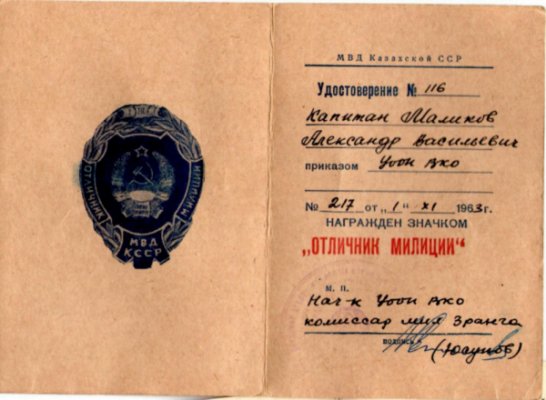 ОТЛИЧНИК МИЛИЦИИ
МВД
КССР
МВД Казахской ССР
Удостоверение № 116
Капитан Маликов
Александр Васильевич
приказом УООП ВКО
№ 217 от „1" XI 1963 г.
НАГРАЖДЕН ЗНАЧКОМ
„ОТЛИЧНИК МИЛИЦИИ“
М. П.
Нач-к УООП ВКО
комиссар мил 3 ранга
подпись
(Юсупов)